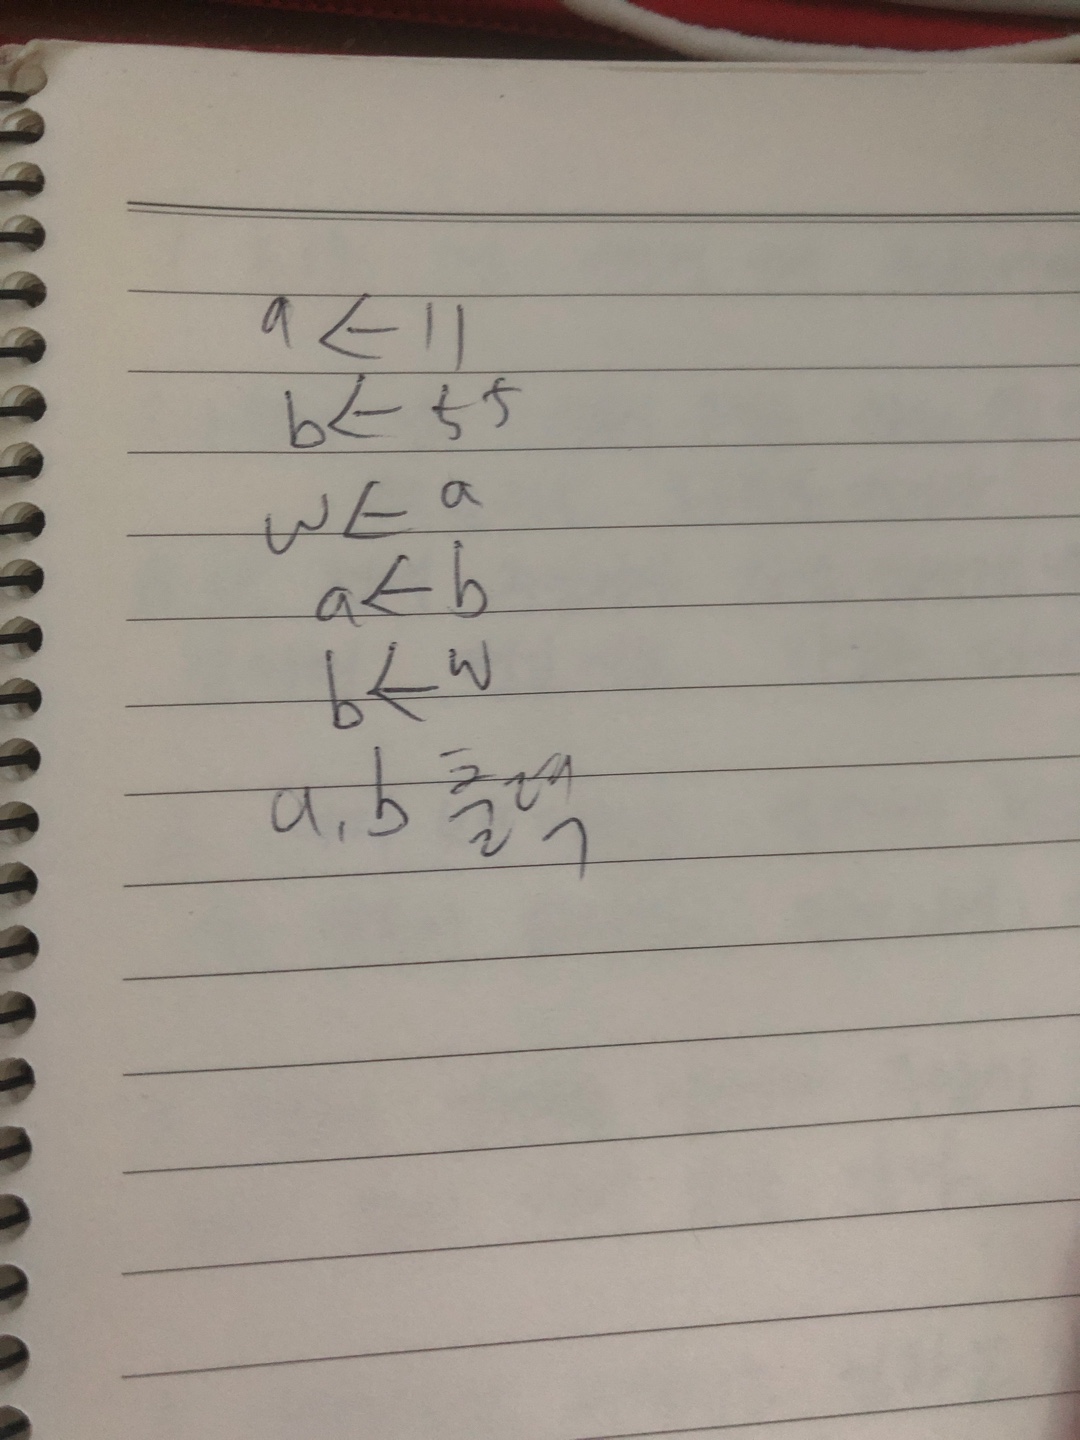 a ← 11
b ← 55
w ← a
a ← b
b ← w
a, b 출력